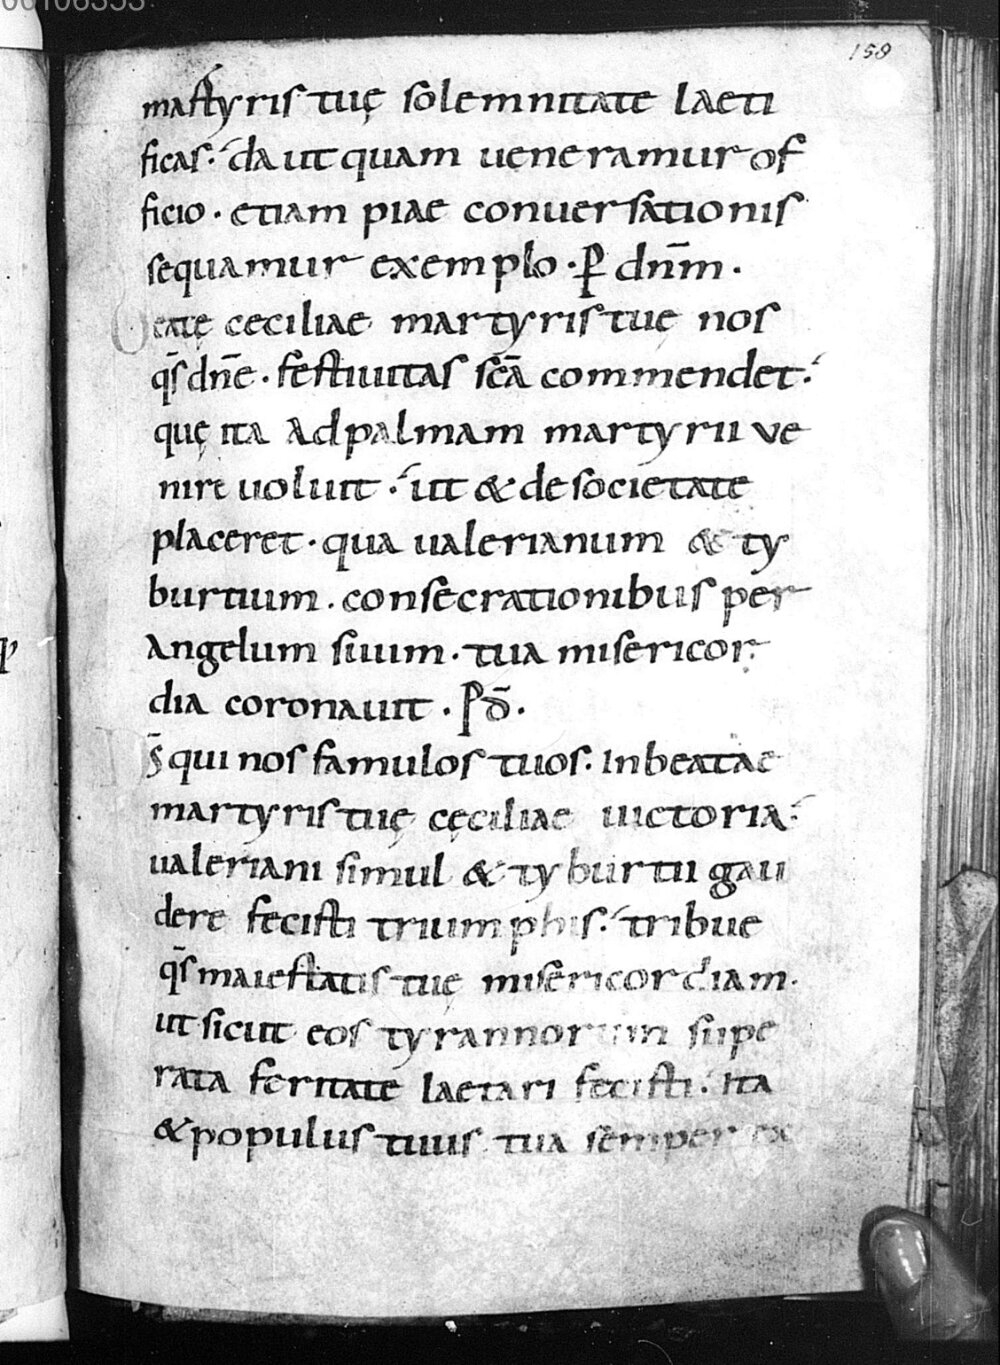 00106353
158
martyris tuę solemnitate laeti
ficas· da ut quam ueneramur of
ficio · etiam piae conuersationis
sequamur exemplo · P dn̄m ·
Beatę ceciliae martyris tuę nos
qs̄ dn̄e · festiuitas sc̄a commendet ·
quę ita ad palmam martyrii ve
nire uoluit · ut & de societate
placeret · qua ualerianum & ty
burtium · consecrationibus per
angelum suum · tua misericor
dia coronauit · P d̄s ·
D̄s qui nos famulos tuos · in beatae
martyris tuę cęciliae uictoria ·
ualeriani simul & tyburtii gau
dere fecisti triumphis · tribue
qs̄ maiestatis tuę misericordiam ·
ut sicut eos tyrannorum supe
rata feritate laetari fecisti · ita
& populus tuus tua semper ex